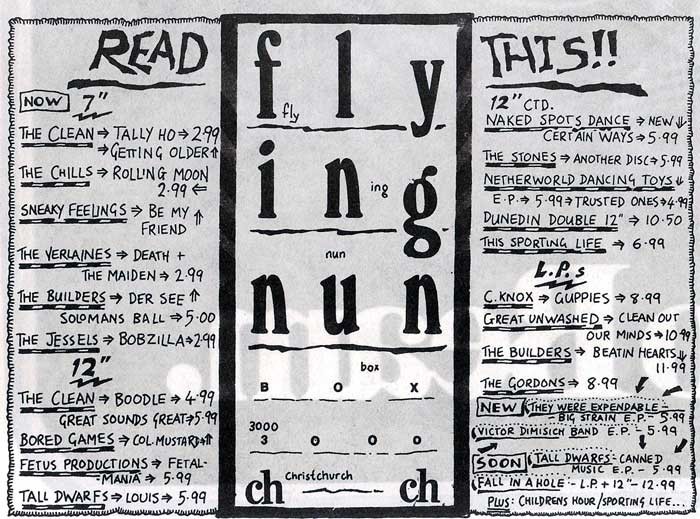 READ
NOW 7"
THE CLEAN → TALLY HO → 2·99
→ GETTING OLDER ↑
THE CHILLS → ROLLING MOON
2·99 ⇐
SNEAKY FEELINGS → BE MY ↑
FRIEND
THE VERLAINES → DEATH +
THE MAIDEN → 2·99
THE BUILDERS → DER SEE ↑
SOLOMANS BALL → 5·00
THE JESSELS → BOBZILLA → 2·99
12"
THE CLEAN → BOODLE → 4·99
GREAT SOUNDS GREAT → 5·99
BORED GAMES → COL. MUSTARD → ↑
FETUS PRODUCTIONS → FETAL-
MANIA → 5·99
TALL DWARFS → LOUIS → 5·99
fly
fly
ing
ing
nun
nun
box
B O X
3000
3 0 0 0
Christchurch
ch ch
THIS!!
12" CTD.
NAKED SPOTS DANCE → NEW ↓
CERTAIN WAYS → 5·99
THE STONES → ANOTHER DISC → 5·99
NETHERWORLD DANCING TOYS ↓
E.P. → 5·99 → TRUSTED ONES → 4·99
DUNEDIN DOUBLE 12" → 10·50
THIS SPORTING LIFE → 6·99
L.P.s
C.KNOX → GUPPIES → 8·99
GREAT UNWASHED → CLEAN OUT
OUR MINDS → 10·99
THE BUILDERS → BEATIN HEARTS ↓
11·99
THE GORDONS → 8·99
NEW THEY WERE EXPENDABLE -
- BIG STRAIN E.P. - 5·99
VICTOR DIMISICH BAND E.P. - 5·99
SOON TALL DWARFS - CANNED
MUSIC E.P. - 5·99
FALL IN A HOLE - L.P. + 12" - 12·99
PLUS: CHILDRENS HOUR / SPORTING LIFE...